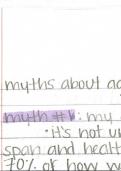 myths about ag
myth #1: my
• it's not u
span and healt
70% of how w